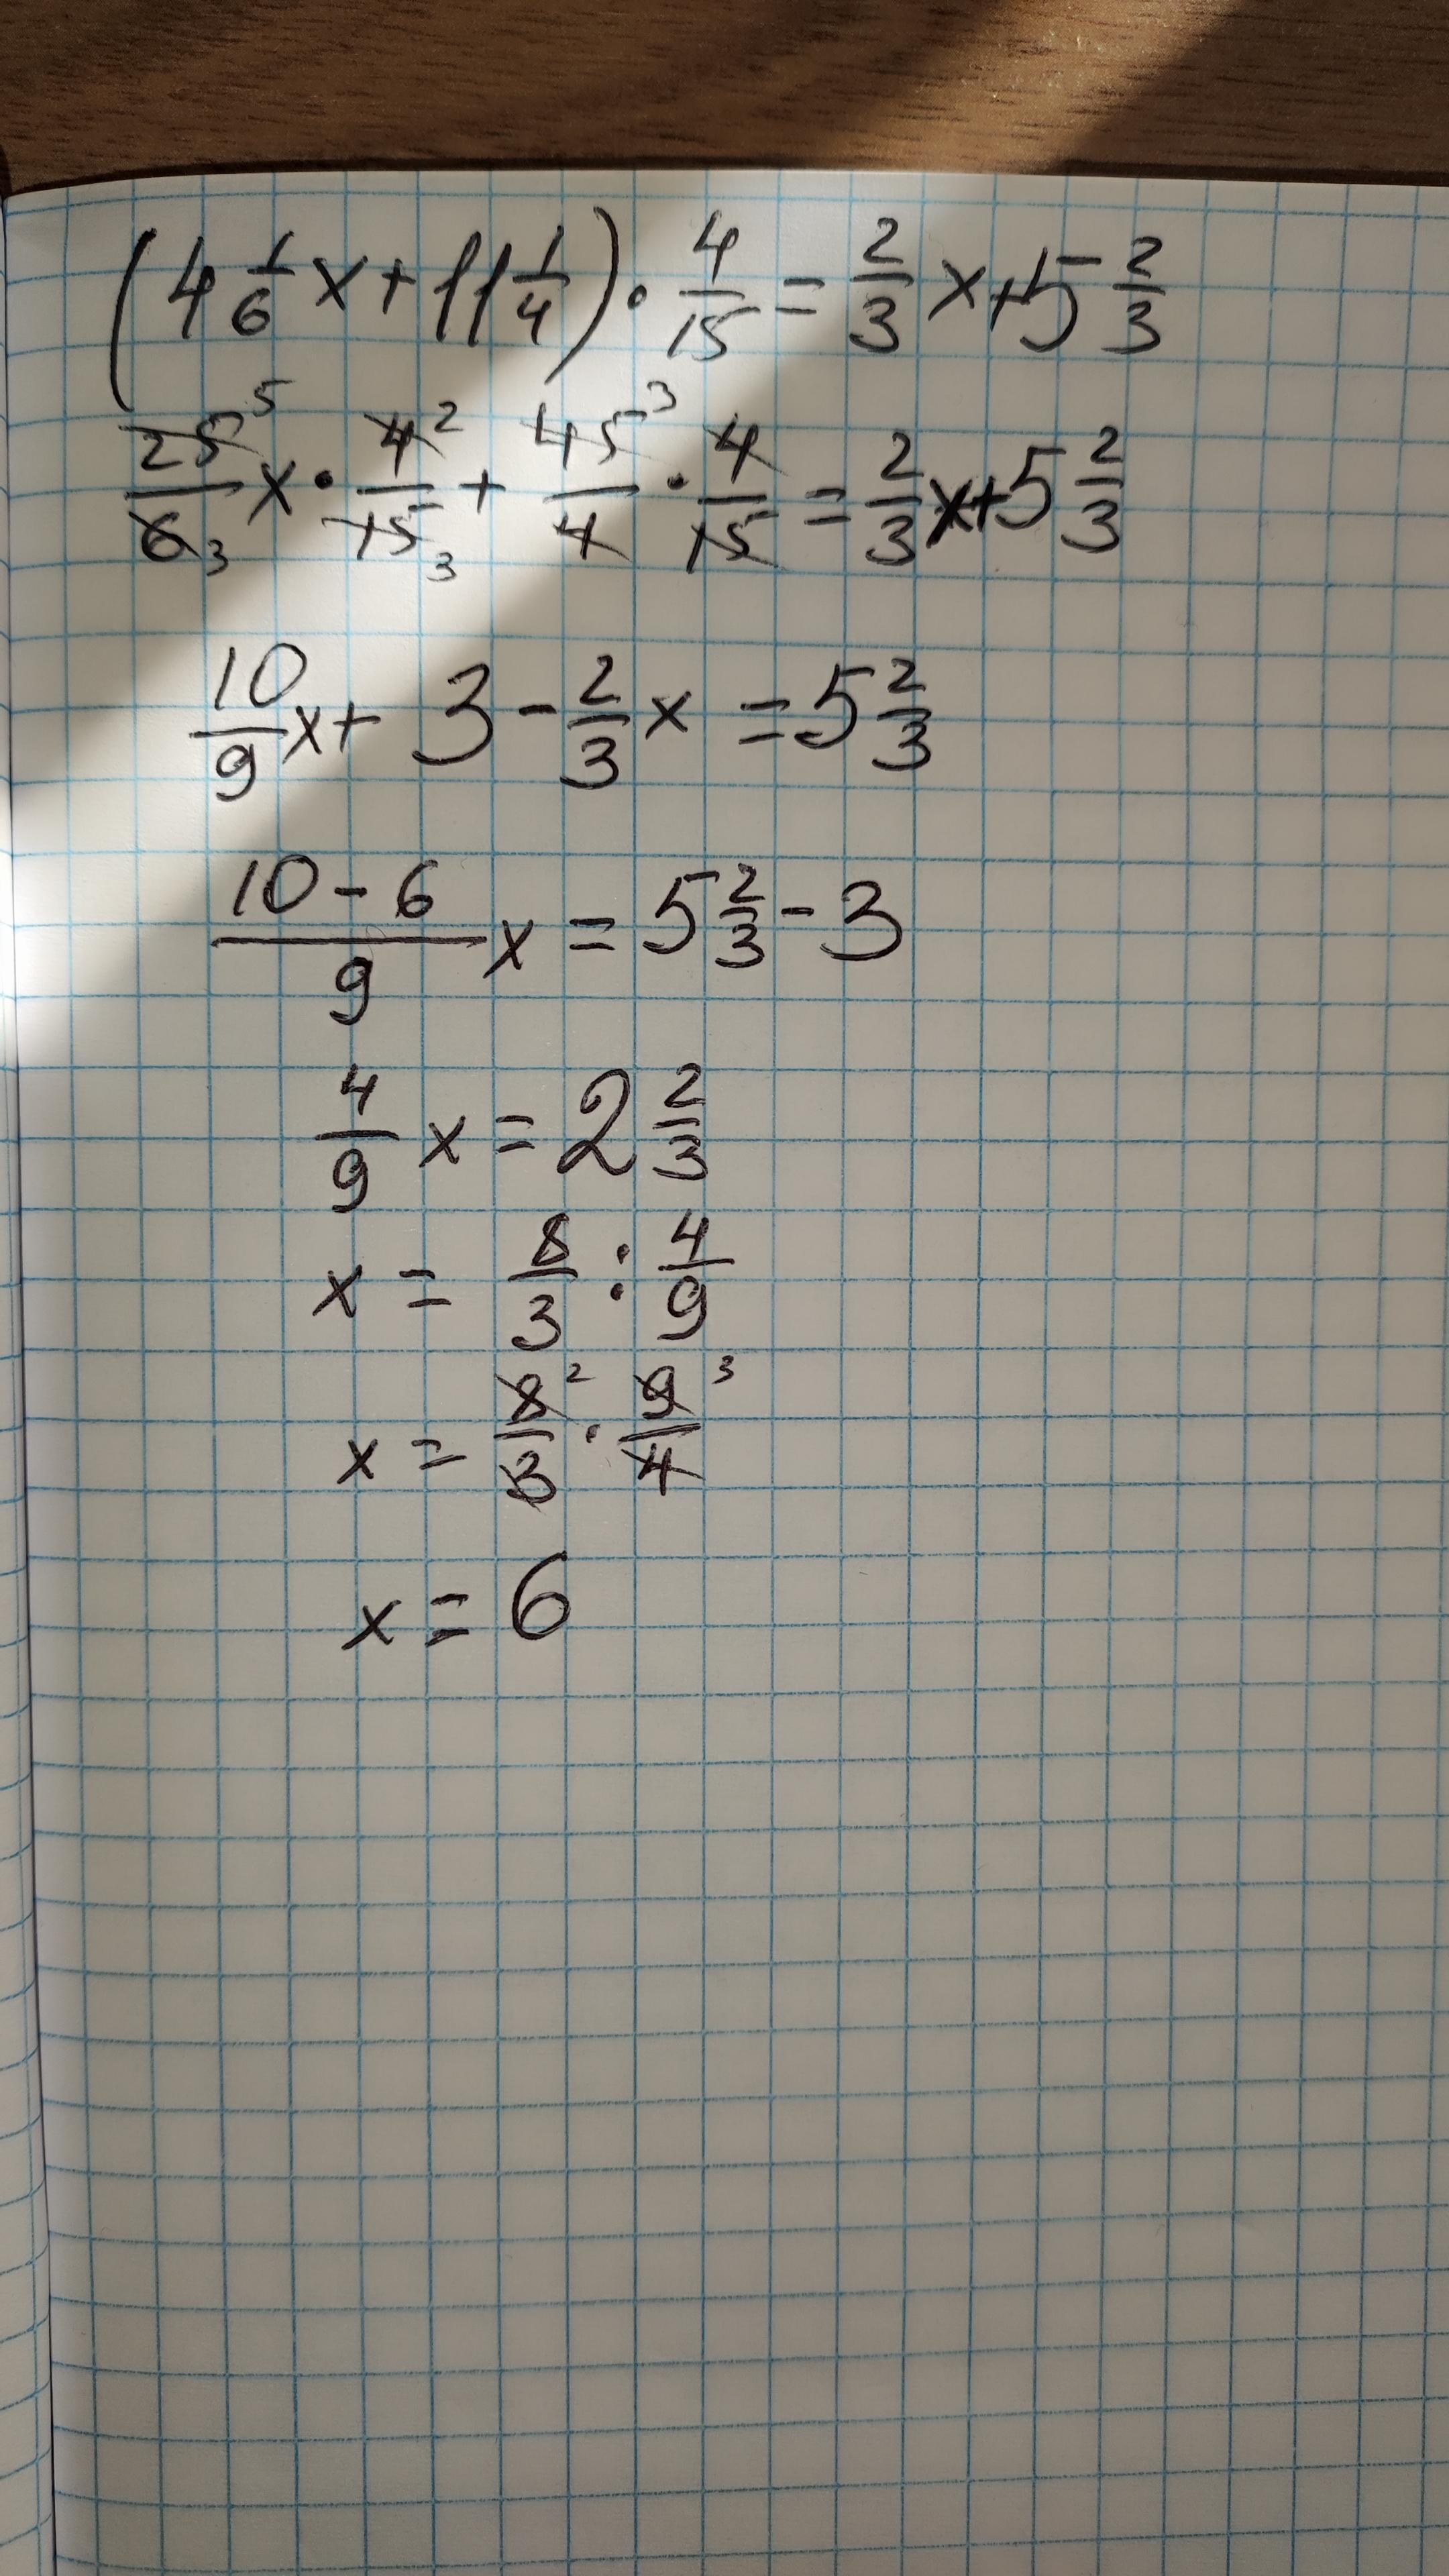 (4 1/6 x + 11 1/4) · 4/15 = 2/3 x + 5 2/3
25 5/6 3 x · 4 2/15 3 + 45 3/4 · 4/15 = 2/3 x + 5 2/3
10/9 x + 3 - 2/3 x = 5 2/3
10 - 6/9 x = 5 2/3 - 3
4/9 x = 2 2/3
x = 8/3 : 4/9
x = 8 2/3 · 9 3/4
x = 6